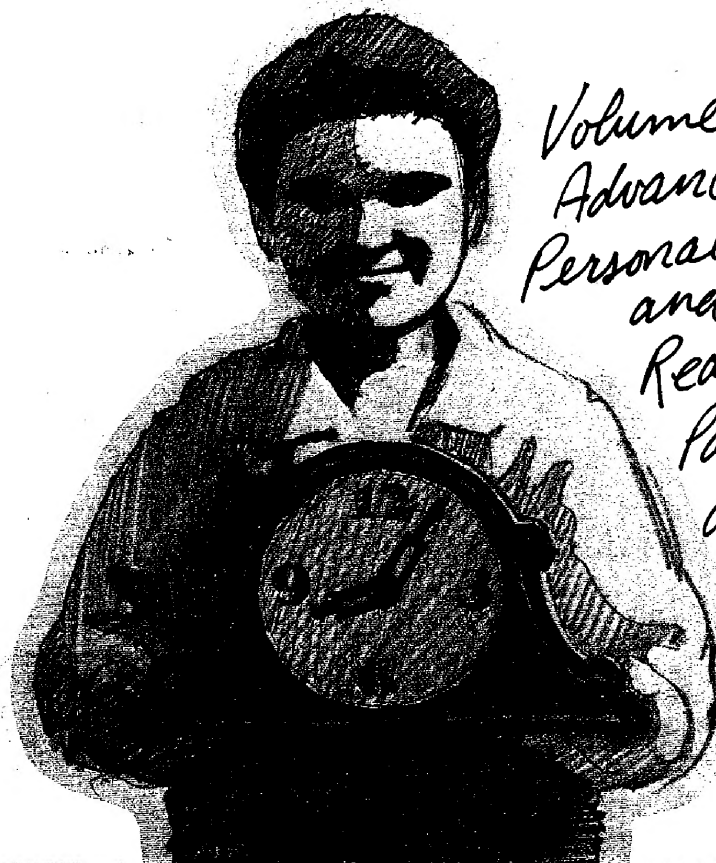 Volume
Advanc
Persona
and
Rea
12
9
3